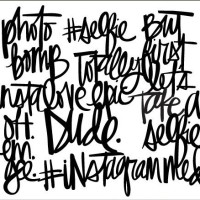 photo #selfie But
bomb Totally first
instalove epic let's
take a
oh. Dude. selfie
em.
gee. #instagrammed